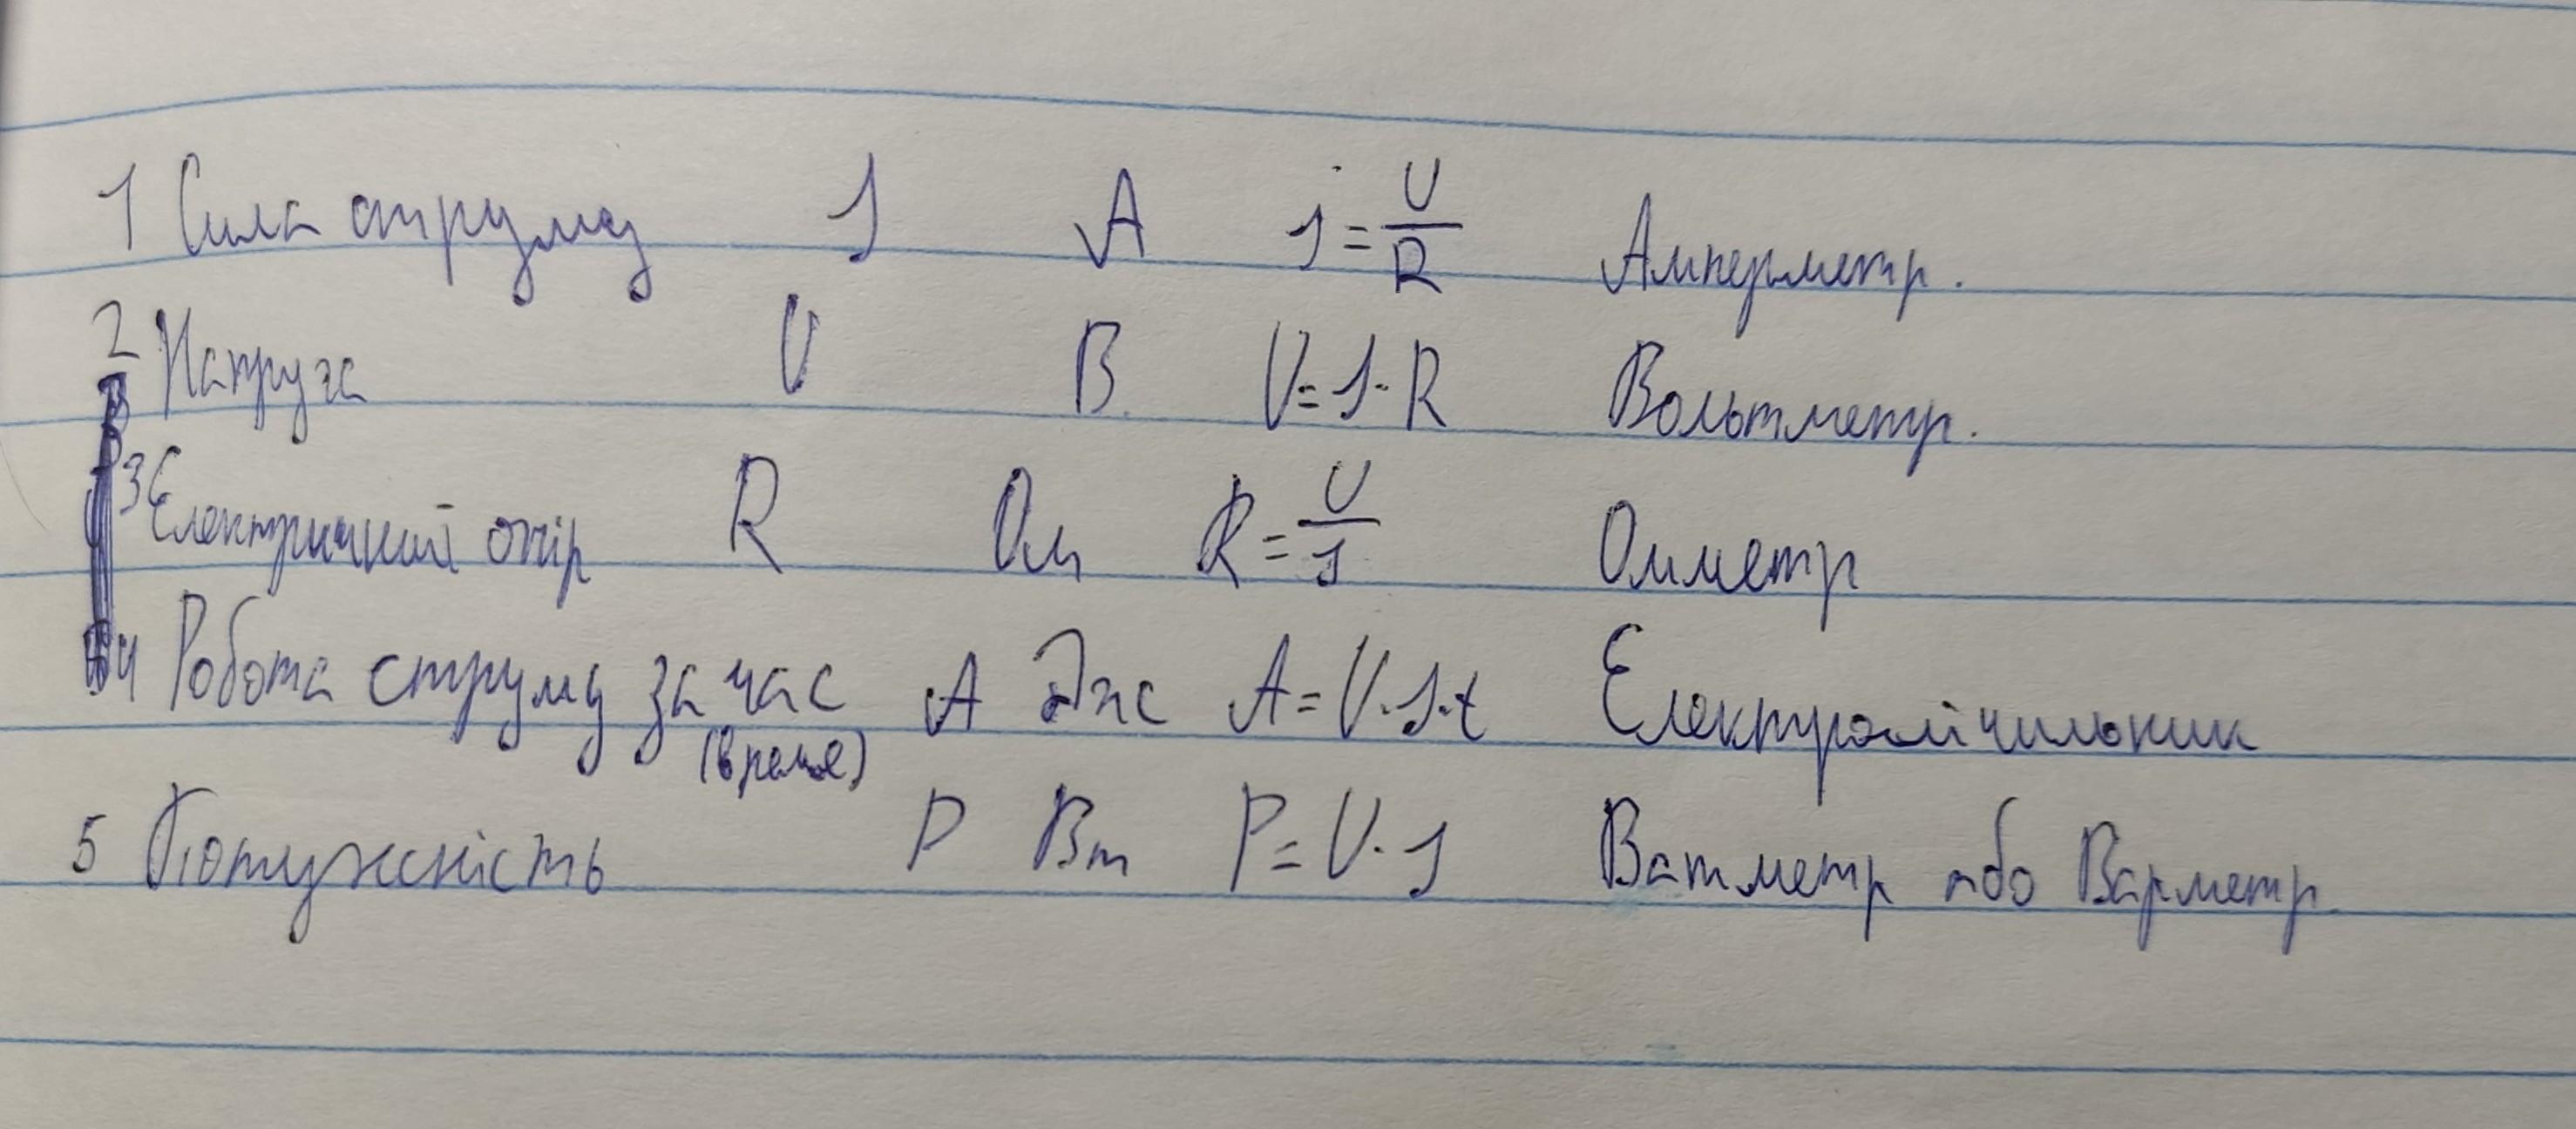 1 Сила струму I A I = U/R Амперметр.
2 Напруга U В U = I · R Вольтметр.
3 Електричний опір R Ом R = U/I Омметр
4 Робота струму за час A Дж A = U · I · t Електролічильник
(время)
5 Потужність P Вт P = U · I Ватметр або Варметр.